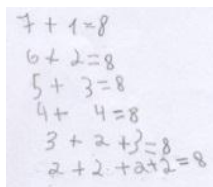 7 + 1=8
6 + 2=8
5 + 3=8
4 + 4=8
3 + 2 +3=8
2 + 2 + 2+2=8